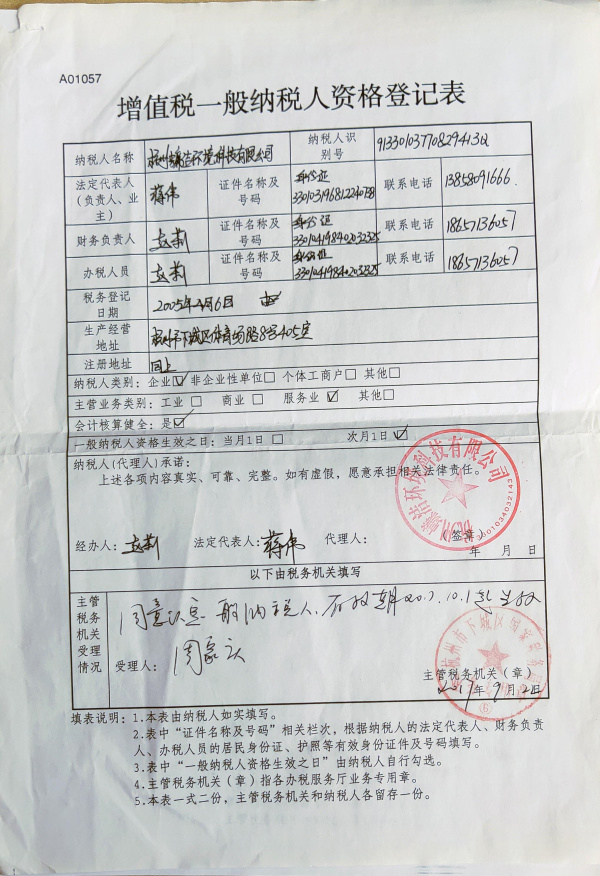 A01057
增值税一般纳税人资格登记表
纳税人名称 杭州绵洁环境科技有限公司 纳税人识别号 91330103770829413Q
法定代表人（负责人、业主） 蒋伟 证件名称及号码 身份证 联系电话 13858091666
财务负责人 赵莉 证件名称及号码 身份证 330104198402032325 联系电话 18657136057
办税人员 赵莉 证件名称及号码 身份证 330104198402032325 联系电话 18657136057
税务登记日期 2005年 月6日
生产经营地址 杭州市下城区体育场路8号405室
注册地址 同上
纳税人类别：企业☑ 非企业性单位□ 个体工商户□ 其他□
主营业务类别：工业□ 商业□ 服务业☑ 其他□
会计核算健全：是☑
一般纳税人资格生效之日：当月1日 □ 次月1日 ☑
纳税人(代理人)承诺：
上述各项内容真实、可靠、完整。如有虚假，愿意承担相关法律责任。
环境科技有限公司
3301034032143
经办人：赵莉 法定代表人：蒋伟 代理人： (签章)
年 月 日
以下由税务机关填写
主管税务机关受理情况
同意认定一般纳税人，有效期2017.10.1起生效
受理人：
杭州市下城区国家税务局
主管税务机关（章）
2017年9月12日
填表说明：1.本表由纳税人如实填写。
2.表中“证件名称及号码”相关栏次，根据纳税人的法定代表人、财务负责
人、办税人员的居民身份证、护照等有效身份证件及号码填写。
3.表中“一般纳税人资格生效之日”由纳税人自行勾选。
4.主管税务机关（章）指各办税服务厅业务专用章。
5.本表一式二份，主管税务机关和纳税人各留存一份。